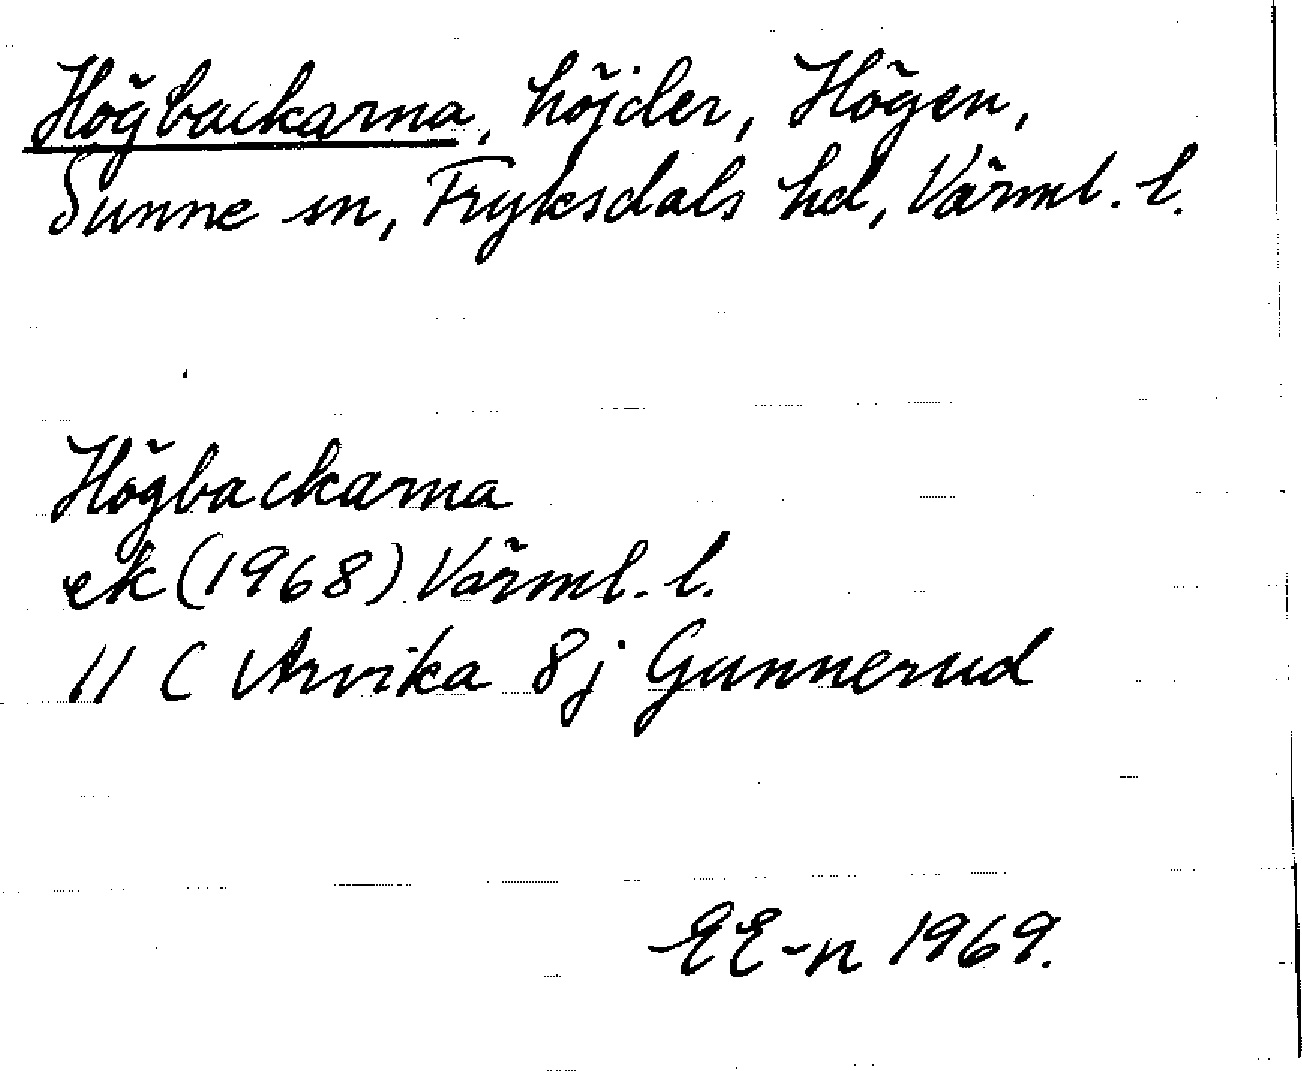 Högbackarna, höjder, Högen,
Sunne sn, Fryksdals hd, Värml. l.
Högbackarna
ek (1968) Värml. l.
11 C Arvika 8j Gunnerud
EE-n 1969.